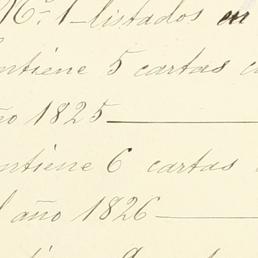 Nº 1-listados en
ntiene 5 cartas c
ño 1825
ntiene 6 cartas
l año 1826